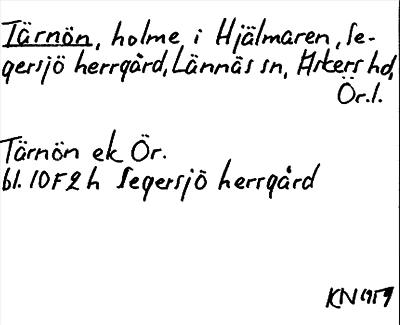 Tärnön, holme i Hjälmaren, Se-
gersjö herrgård, Lännäs sn, Askers hd,
Ör.l.
Tärnön ek Ör.
bl. 10F2h Segersjö herrgård
KN 1959